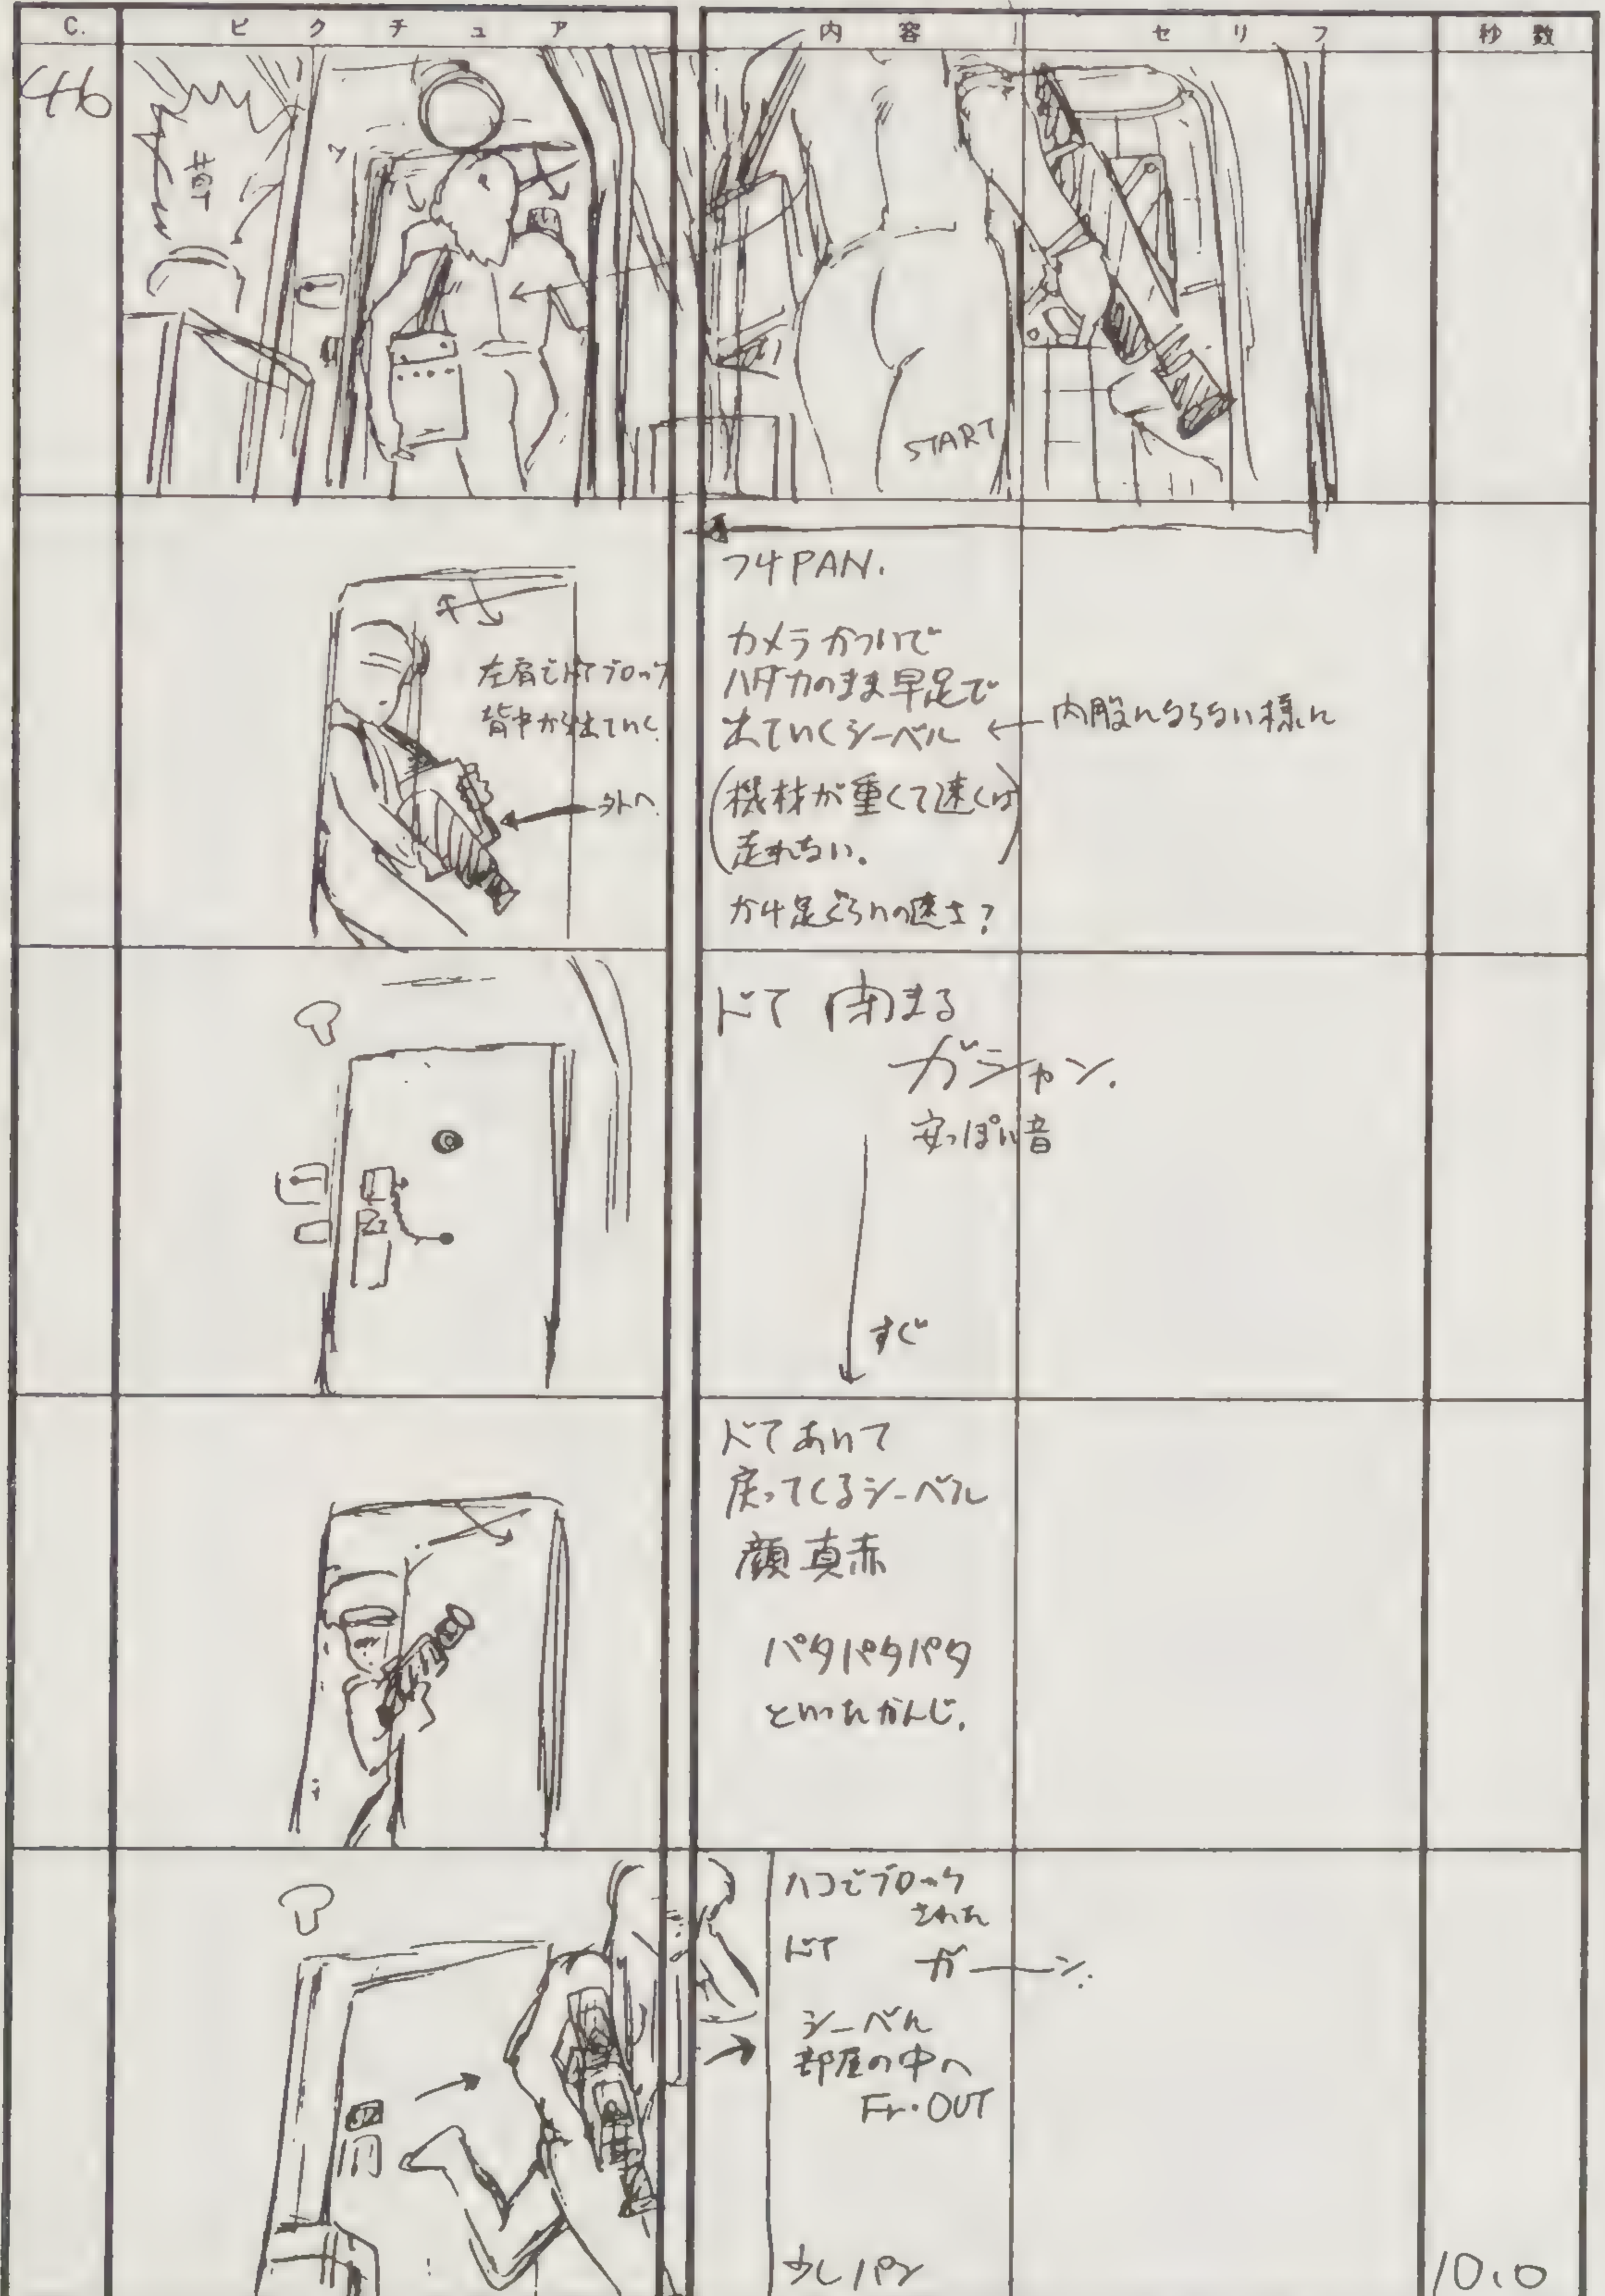 C. ピクチュア 内容 セリフ 秒数
46
草
START
フ4PAN.
カメラかついで
ハダカのまま早足で
出ていくシーベル ← 内股にならない様に
(機材が重くて速くは
走れない。)
かけ足ぐらいの速さ?
左肩でドアブロック
背中から出ていく
外へ
ドア 閉まる
ガシャン.
安っぽい音
すぐ
ドアあいて
戻ってくるシーベル
顔真赤
パタパタパタ
といったかんじ.
ハコでブロック
された
ドア ガーーン.
シーベル
部屋の中へ
Fr.OUT
少しパン
10.0